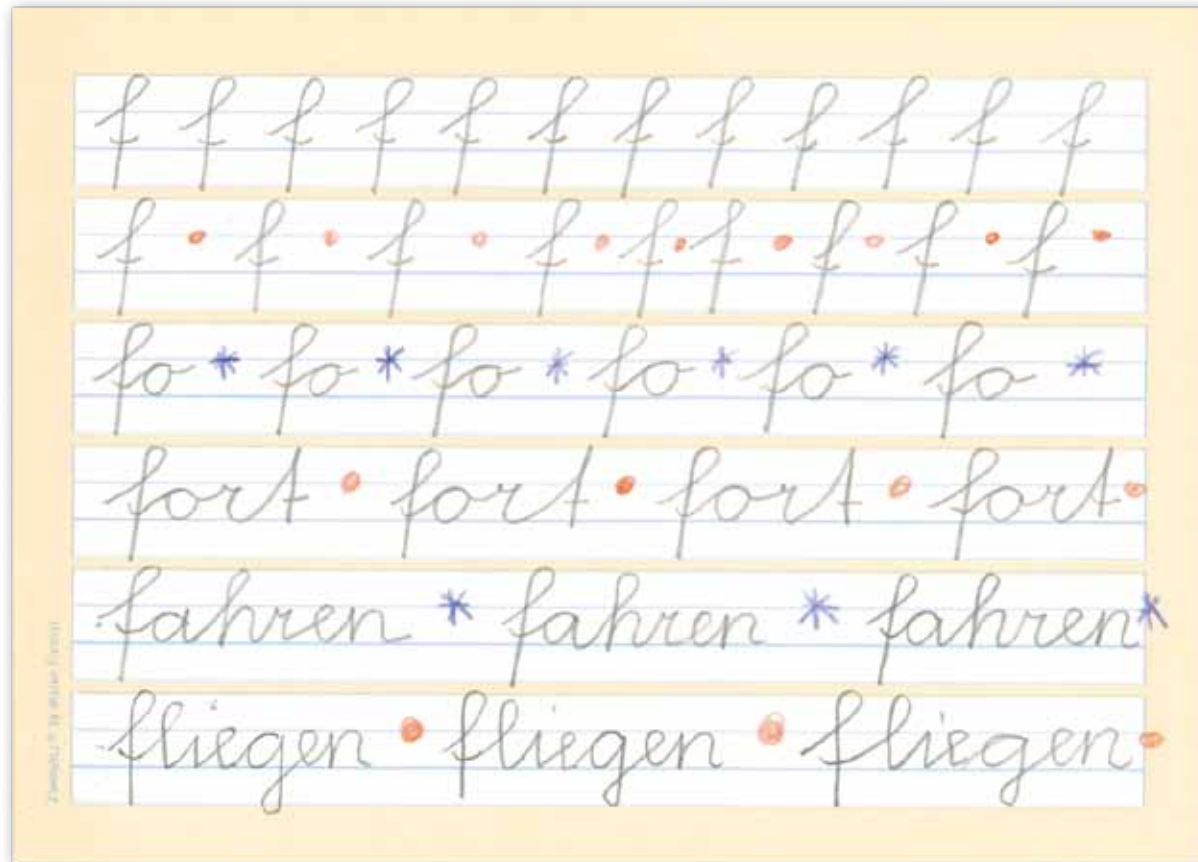 f f f f f f f f f f f f
f f f f f f f f f
fo fo fo fo fo fo
fort fort fort fort
fahren fahren fahren
fliegen fliegen fliegen